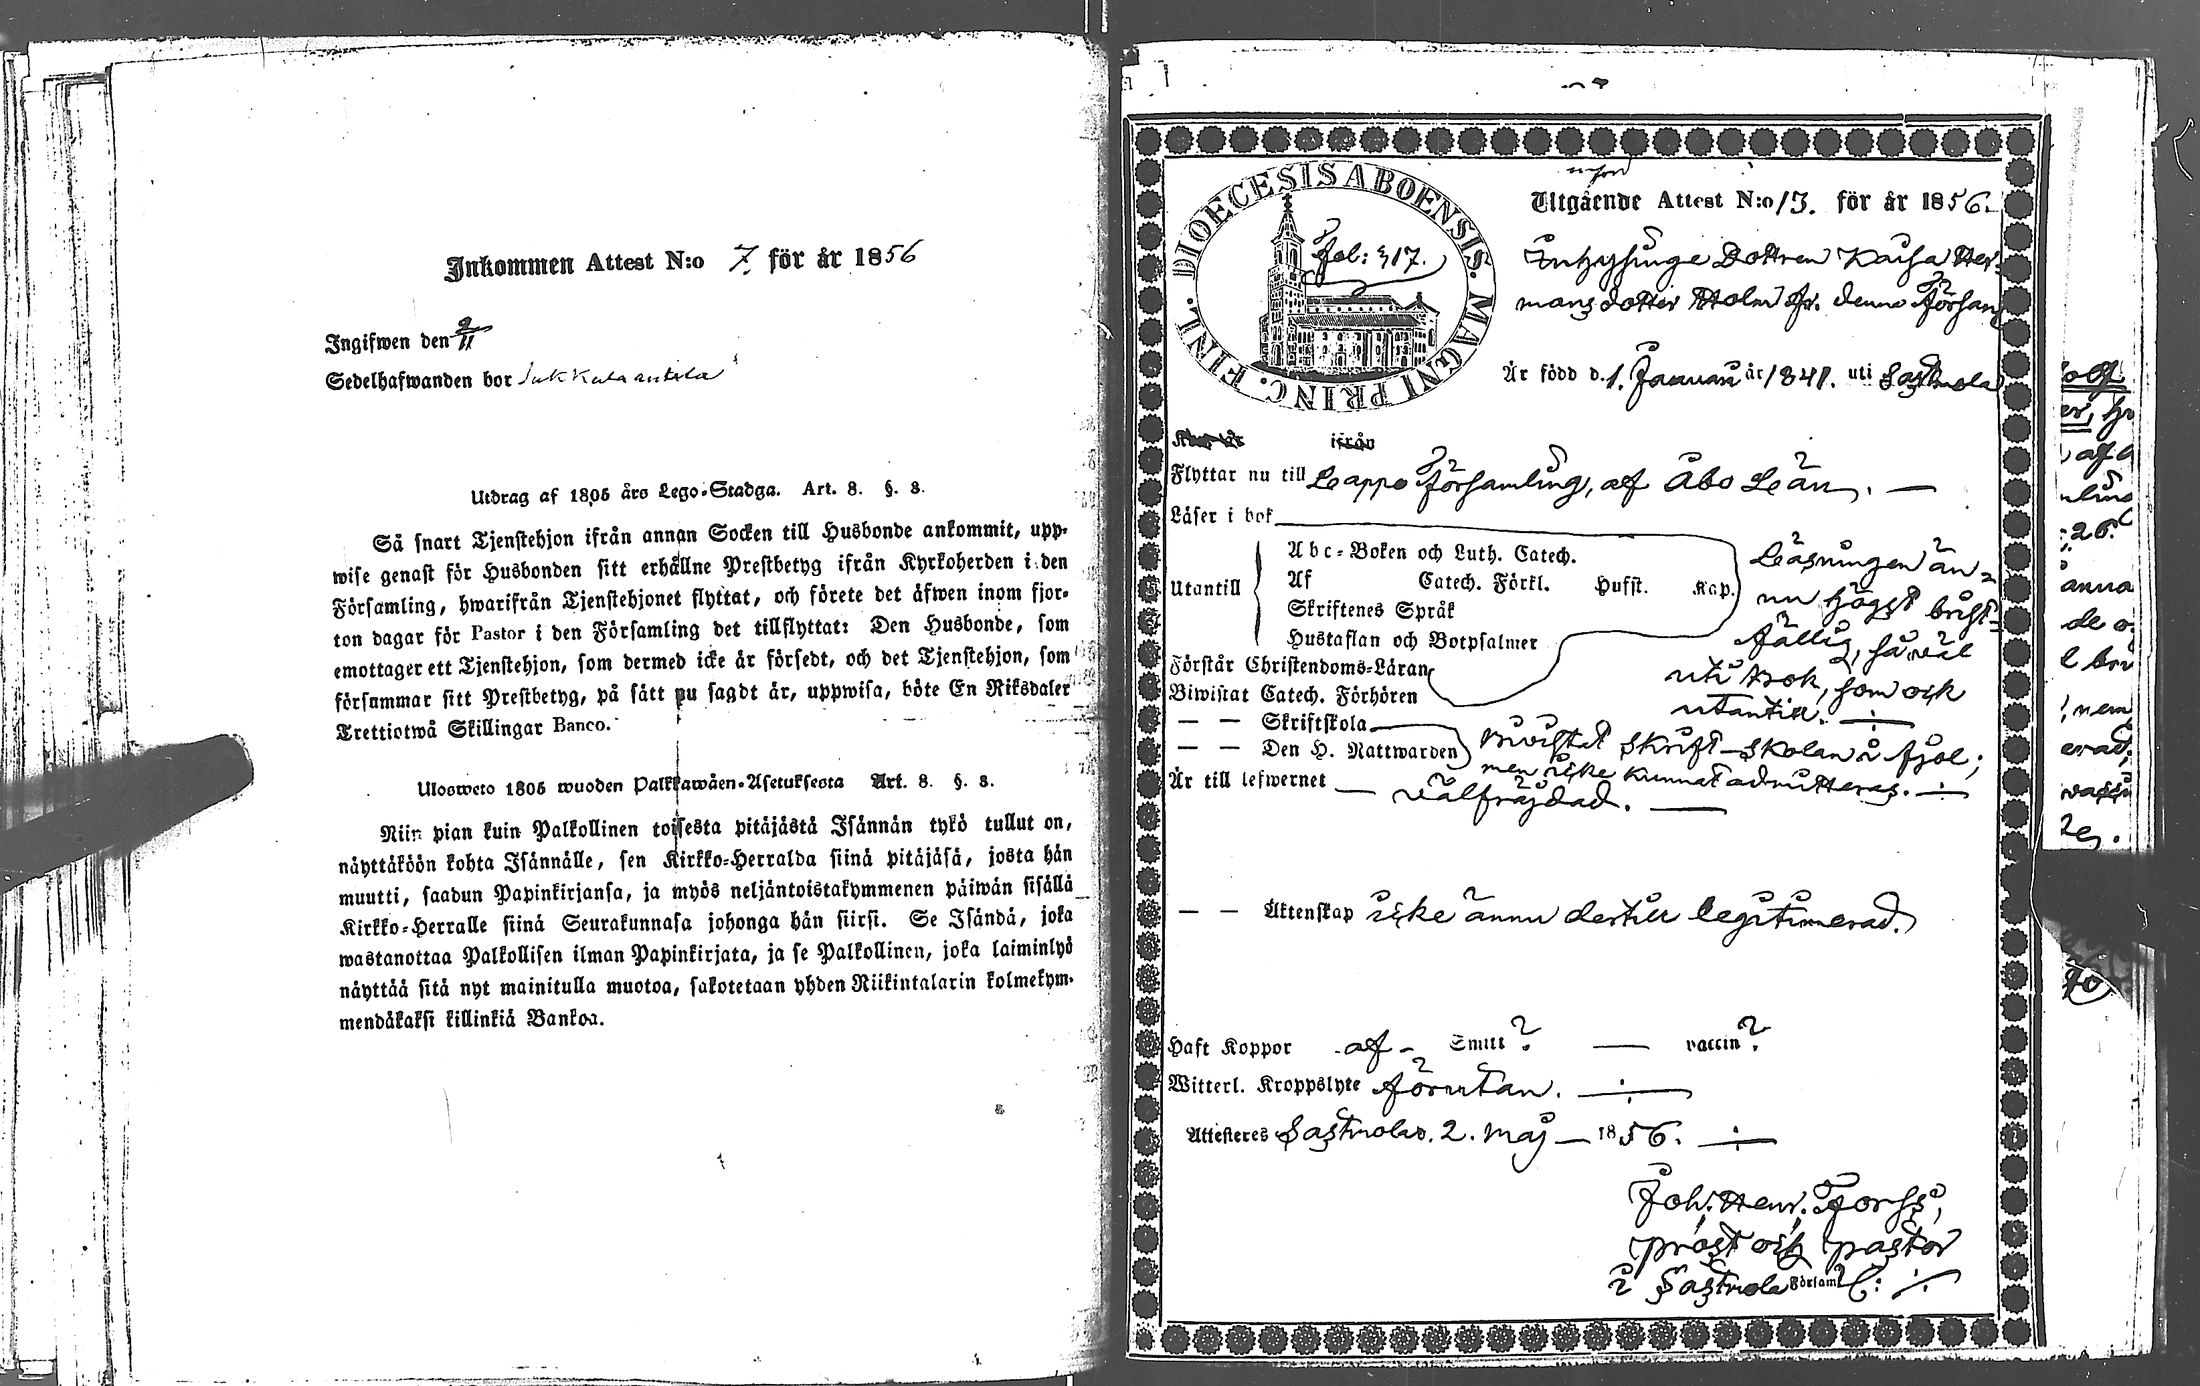 Inkommen Attest N:o 7. för år 1856
Ingifwen den 9/11
Sedelhafwanden bor Jukkalaankila
Utdrag af 1805 års Lego-Stadga. Art. 8. §. 8.
Så snart Tjenstehjon ifrån annan Socken till Husbonde ankommit, upp-
wise genast för Husbonden sitt erhållne Prestbetyg ifrån Kyrkoherden i den
Församling, hwarifrån Tjenstehjonet flyttat, och förete det äfwen inom fjor-
ton dagar för Pastor i den Församling det tillflyttat: Den Husbonde, som
emottager ett Tjenstehjon, som dermed icke är försedt, och det Tjenstehjon, som
försummar sitt Prestbetyg, på sätt nu sagdt är, uppwisa, böte En Riksdaler
Trettiotwå Skillingar Banco.
Ulosweto 1805 wuoden Palkkawäen-Asetuksesta Art. 8. §. 8.
Niin pian kuin Palkollinen toisesta pitäjästä Isännän tykö tullut on,
näyttäköön kohta Isännälle, sen Kirkko-Herralda siinä pitäjäsä, josta hän
muutti, saadun Papinkirjansa, ja myös neljäntoistakymmenen päiwän sisällä
Kirkko-Herralle siinä Seurakunnasa johonga hän siirsi. Se Isändä, joka
wastanottaa Palkollisen ilman Papinkirjata, ja se Palkollinen, joka laiminlyö
näyttää sitä nyt mainitulla muotoa, sakotetaan yhden Riikintalarin kolmekym-
mendäkaksi killinkiä Bankoa.
DIOECESIS ABOENSIS. MAGNI PRINC. FINL.
Fol: 317.
Utgående Attest N:o 13. för år 1856.
Inhysinge Dottren Kaisa Her-
mansdotter Holm fr. denna Försam
Är född d. 1. Januari år 1841. uti Sastmola
ifrån
Flyttar nu till Lappo Församling, af Åbo Län. —
Läser i bok
Utantill
Abc-Boken och Luth. Catech.
Af Catech. Förkl. Hufst. Kap.
Skriftenes Språk
Hustaflan och Botpsalmer
Läsningen än-
nu högst brist-
fällig, så väl
uti bok, som ock
utantill.
Förstår Christendoms-Läran
Biwistat Catech. Förhören
— — Skriftskola
— — Den H. Nattwarden
Bivistat Skrift-skolan i fjol;
men icke kunnat admitteras.
Är till lefwernet — välfräjdad. —
— — Äktenskap icke ännu dertill legitimerad.
Haft Koppor - af - Smitt? — vaccin?
Witterl. Kroppslyte förutan.
Attesteres Sastmola d. 2. Maj — 1856.
Joh. Henr. Forss,
Prost och Pastor
i Sastmola Församl: